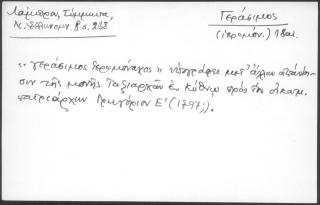 Λάμπρος, Σύμμικτα,
Ν. Ἑλληνομν. 8 σ. 233
Γεράσιμος
(ἱερομόν.) 18 αι.
«Γεράσιμος ἱερομόναχος» ὑπογράφει μετ' ἄλλων
σιν τῆς μονῆς Ταξιαρχῶν ἐν πρὸς τὸν οἰκουμ.
πατριάρχην Γρηγόριον Ε' (1797;).